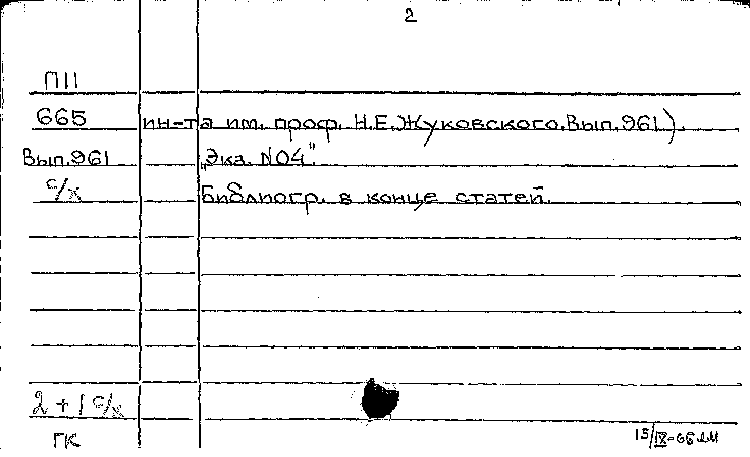 2
П11
665 ин-та им. проф. Н.Е.Жуковского.Вып.961).
Вып.961 „Экз. №04".
с/х Библиогр. в конце статей.
2 + 1 с/х
ГК
15/IX-66